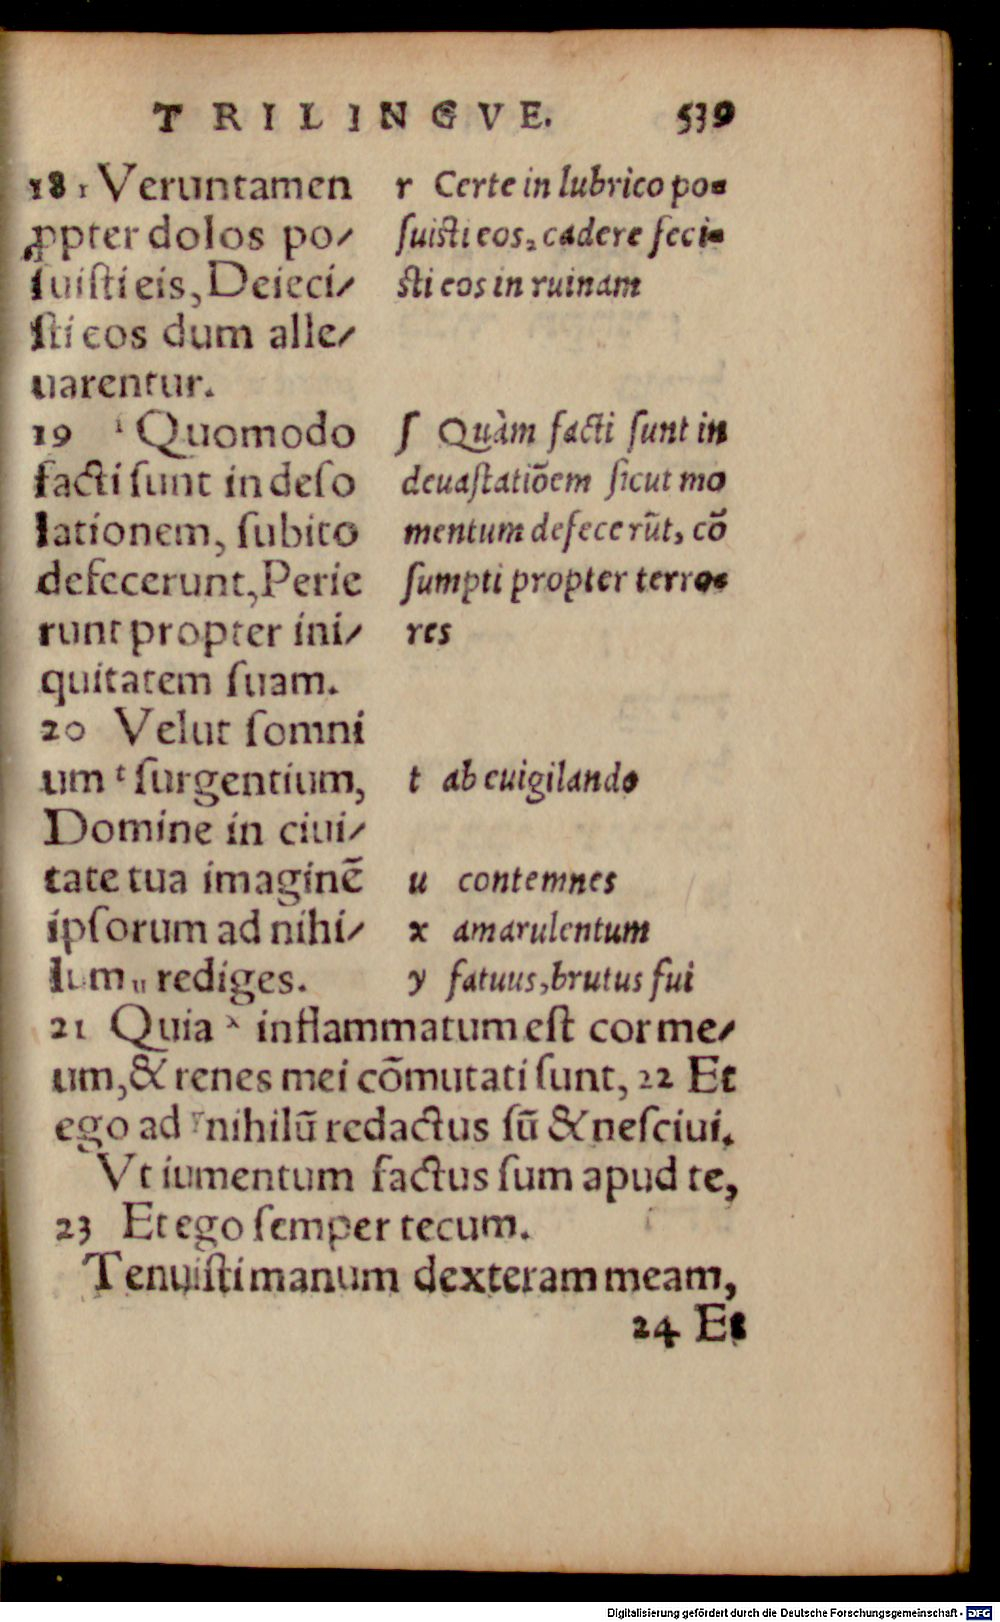 TRILINGVE. 539
18 r Veruntamen
ꝓpter dolos po/
ſuiſti eis, Deieci/
ſti eos dum alle/
uarentur.
19 ſ Quomodo
facti ſunt in deſo
lationem, ſubito
defecerunt, Perie
runt propter ini/
quitatem ſuam.
20 Velut ſomni
um t ſurgentium,
Domine in ciui/
tate tua imaginē
ipſorum ad nihi/
lum u rediges.
r Certe in lubrico po-
ſuiſti eos, cadere feci-
ſti eos in ruinam
ſ Quàm facti ſunt in
deuaſtatiōem ſicut mo
mentum defecerūt, cō
ſumpti propter terro-
res
t ab euigilando
u contemnes
x amarulentum
y fatuus, brutus fui
21 Quia x inflammatum eſt cor me/
um, & renes mei cōmutati ſunt, 22 Et
ego ad y nihilū redactus ſū & neſciui.
Vt iumentum factus ſum apud te,
23 Et ego ſemper tecum.
Tenuiſti manum dexteram meam,
24 Et
Digitalisierung gefördert durch die Deutsche Forschungsgemeinschaft - DFG